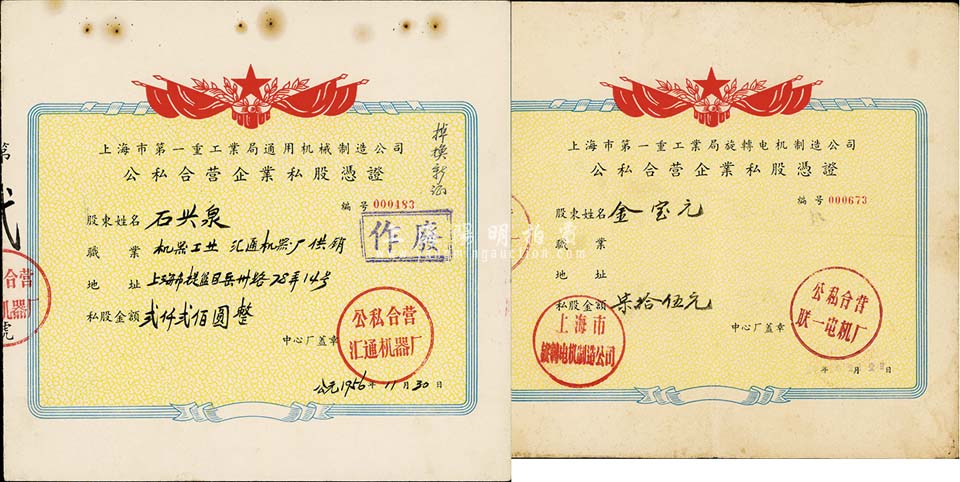 上海市第一重工業局通用机械制造公司
公私合营企業私股憑證
掉换新证
編号 000483
股東姓名 石兴泉
作廢
職業 机器工业 汇通机器厂供销
地址 上海市提篮区岳州路78弄14号
私股金額 弍仟弍佰圆整
中心厂盖章
公私合营
汇通机器厂
公元1956年11月30日
第
号
上海市第一重工業局旋轉电机制造公司
公私合营企業私股憑證
編号 000673
股東姓名 金宝元
職業
地址
私股金額 柒拾伍元
中心厂盖章
上海市
旋轉电机制造公司
公私合营
联一电机厂
年 月 日
陽明拍賣